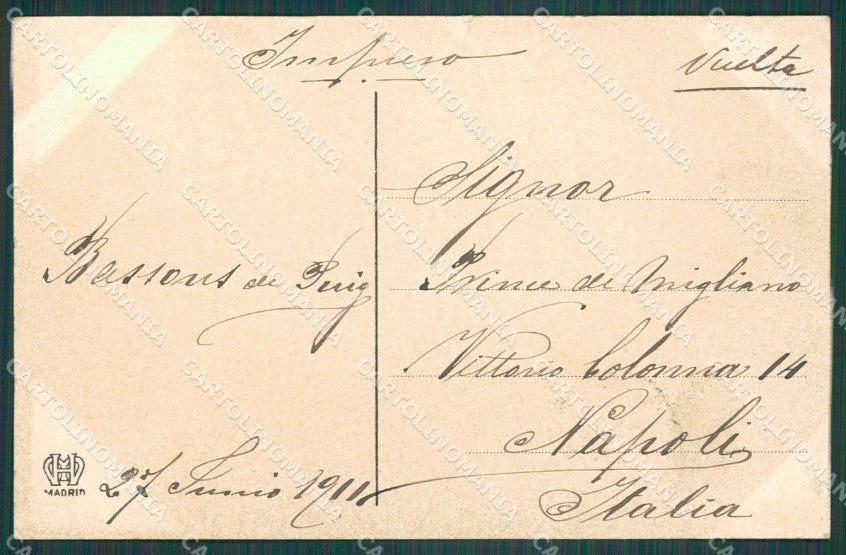 Impreso
Vuelta
Signor
Prince de Migliano
Vittorio Colonna 14
Napoli
Italia
Bassons de Puig
27 Junio 1911
MADRID
CARTOLINOMANIA